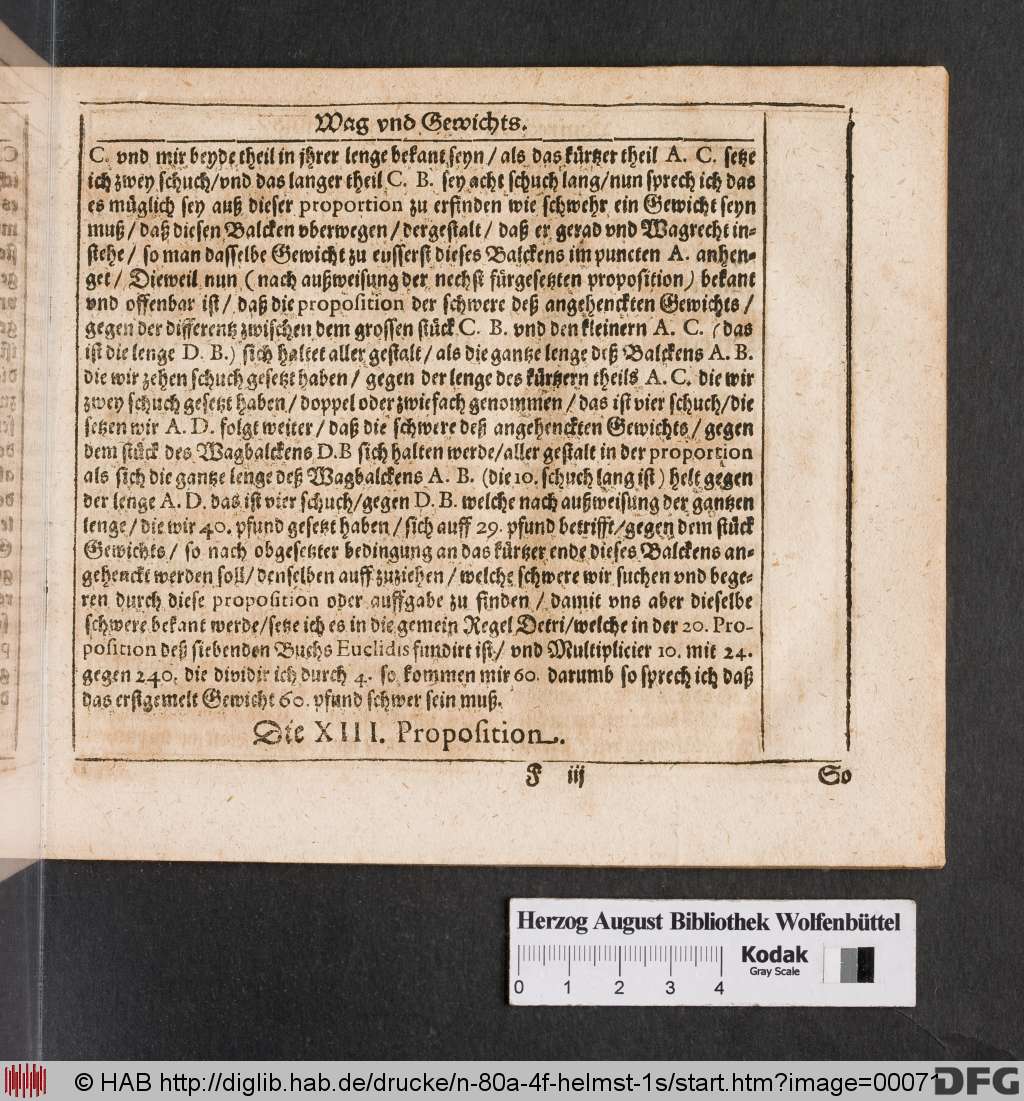 Wag vnd Gewichts.
C. vnd mir beyde theil in jhrer lenge bekant seyn / als das kürtzer theil A. C. setze
ich zwey schuch/vnd das langer theil C. B. sey acht schuch lang/nun sprech ich das
es müglich sey auß dieser proportion zu erfinden wie schwehr ein Gewicht seyn
muß / daß diesen Balcken vberwegen / dergestalt / daß er gerad vnd Wagrecht in-
stehe / so man dasselbe Gewicht zu eusserst dieses Balckens im puncten A. anhen-
get / Dieweil nun ( nach außweisung der nechst fürgesetzten proposition) bekant
vnd offenbar ist / daß die proposition der schwere deß angehenckten Gewichts /
gegen der differentz zwischen dem grossen stück C. B. vnd den kleinern A. C. (das
ist die lenge D. B.) sich haltet aller gestalt / als die gantze lenge deß Balckens A. B.
die wir zehen schuch gesetzt haben / gegen der lenge des kürtzern theils A. C. die wir
zwey schuch gesetzt haben / doppel oder zwiefach genommen / das ist vier schuch/die
setzen wir A. D. folgt weiter / daß die schwere deß angehenckten Gewichts / gegen
dem stück des Wagbalckens D.B sich halten werde/aller gestalt in der proportion
als sich die gantze lenge deß Wagbalckens A. B. (die 10. schuch lang ist) helt gegen
der lenge A. D. das ist vier schuch/gegen D. B. welche nach außweisung der gantzen
lenge / die wir 40. pfund gesetzt haben / sich auff 29. pfund betrifft/gegen dem stück
Gewichts / so nach obgesetzter bedingung an das kürtzer ende dieses Balckens an-
gehenckt werden soll/denselben auff zuziehen / welche schwere wir suchen vnd bege-
ren durch diese proposition oder auffgabe zu finden / damit vns aber dieselbe
schwere bekant werde/setze ich es in die gemein Regel Detri/welche in der 20. Pro-
position deß siebenden Buchs Euclidis fundirt ist/ vnd Multiplicier 10. mit 24.
gegen 240. die dividir ich durch 4. so kommen mir 60. darumb so sprech ich daß
das erstgemelt Gewicht 60. pfund schwer sein muß.
Die XIII. Proposition.
F iij So
Herzog August Bibliothek Wolfenbüttel
Kodak
Gray Scale
0 1 2 3 4
© HAB http://diglib.hab.de/drucke/n-80a-4f-helmst-1s/start.htm?image=00071
DFG